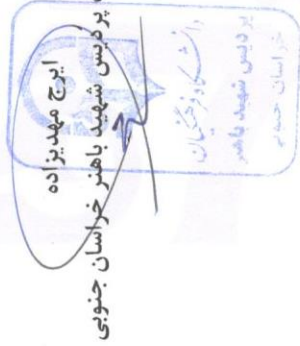 ایرج مهدیزاده
پردیس شهید باهنر خراسان جنوبی
دانشگاه فرهنگیان
پردیس شهید باهنر
خراسان جنوبی